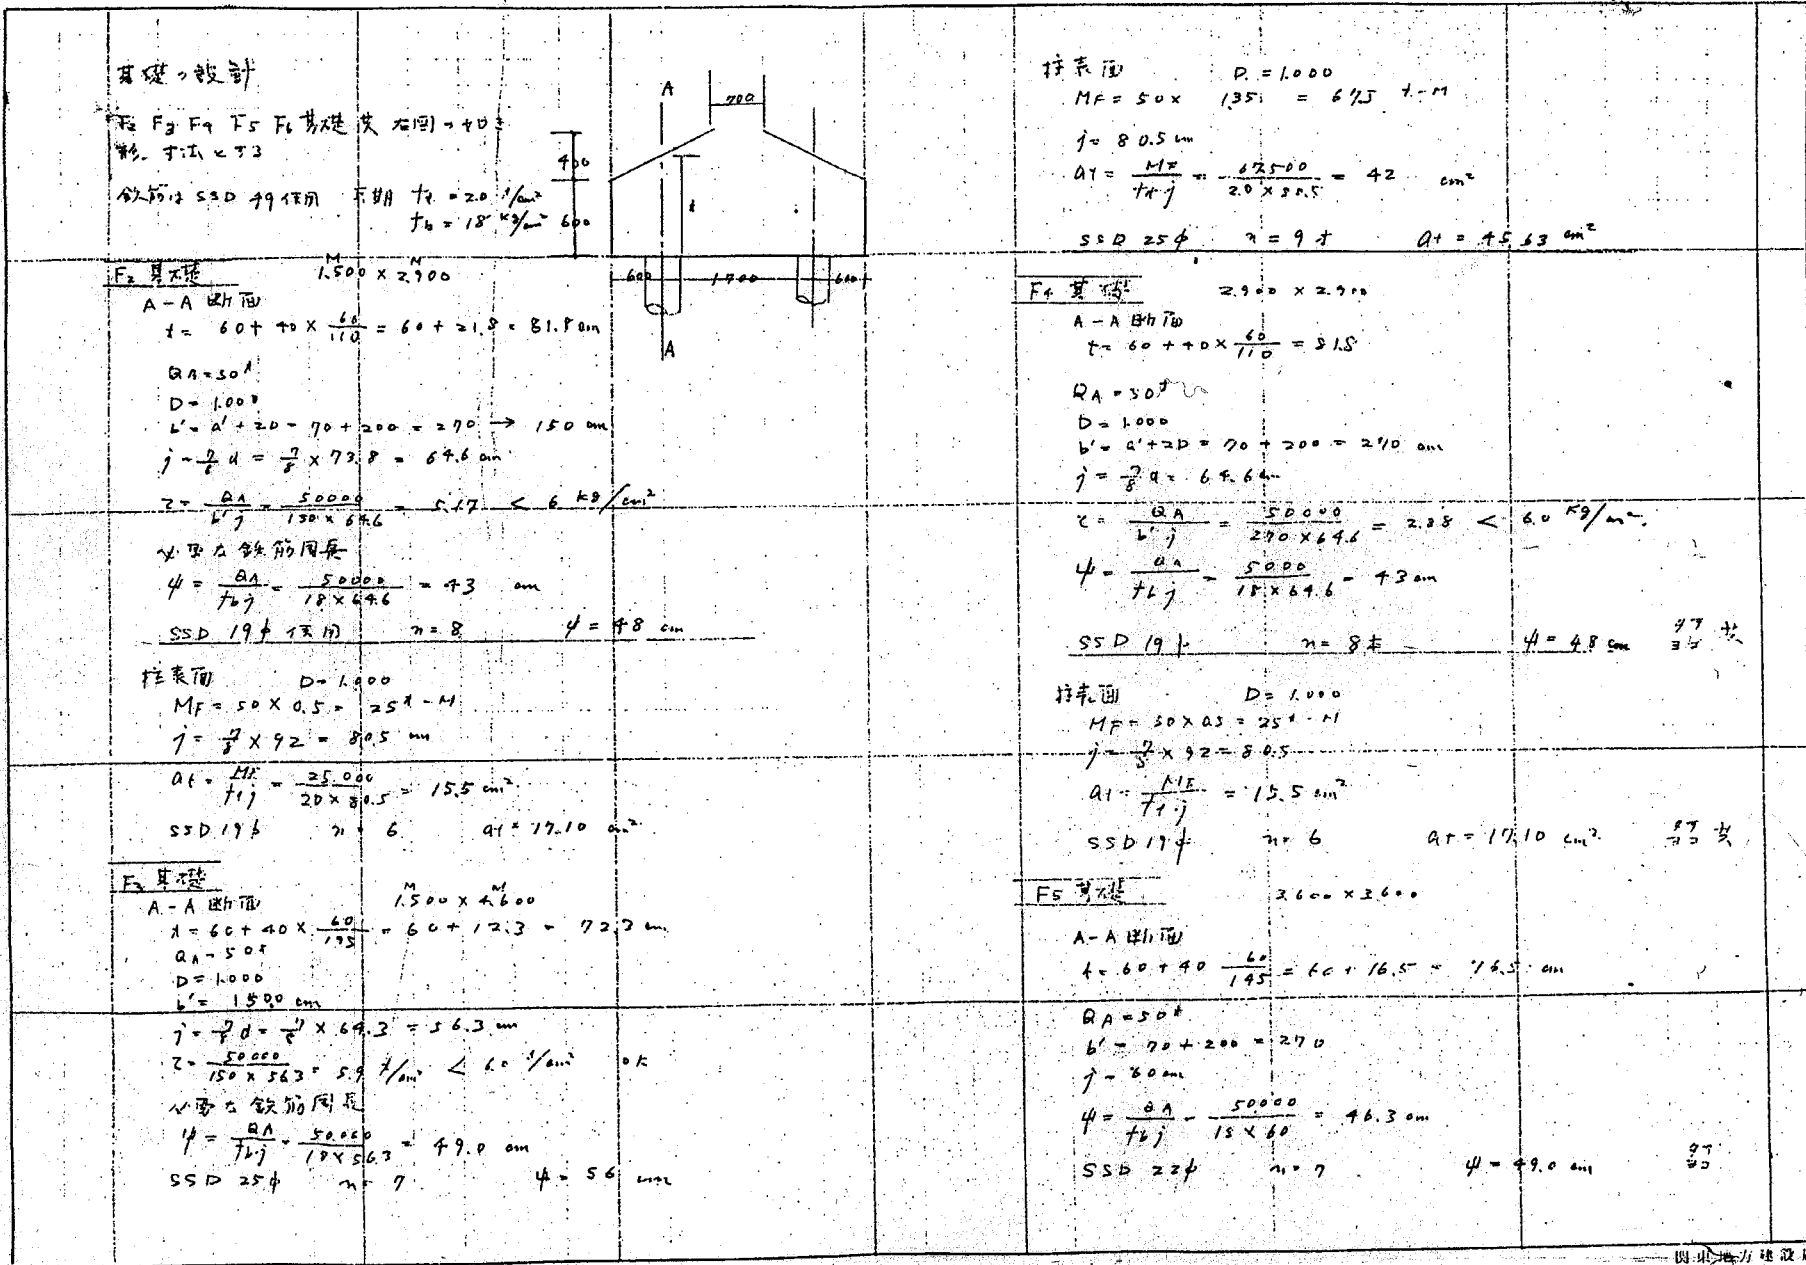 基礎の設計
F2 F3 F4 F5 F6 基礎共 右図の如き
形、寸法とする
鉄筋は SSD 49 使用 長期 ft = 2.0 t/cm²
fb = 18 kg/cm²
A
700
400
t
600
600 1700 600
A
F2 基礎 1.500 × 2.900
A-A 断面
t = 60 + 40 × 60/110 = 60 + 21.8 = 81.8 cm
QA = 50 t
D = 1.000
b' = a' + 2D = 70 + 200 = 270 → 150 cm
j = 7/8 d = 7/8 × 73.8 = 64.6 cm
τ = QA/b'j = 50000/150 × 64.6 = 5.17 < 6 kg/cm²
必要な鉄筋周長
ψ = QA/fb j = 50000/18 × 64.6 = 43 cm
SSD 19φ 使用 n = 8 ψ = 48 cm
柱表面 D = 1.000
MF = 50 × 0.5 = 25 t-M
j = 7/8 × 92 = 80.5 cm
at = MF/ft j = 25.000/20 × 80.5 = 15.5 cm²
SSD 19φ n = 6 at = 17.10 cm²
F3 基礎 1.500 × 4.600
A-A 断面
t = 60 + 40 × 60/195 = 60 + 12.3 = 72.3 cm
QA = 50 t
D = 1.000
b' = 150.0 cm
j = 7/8 d = 7/8 × 64.3 = 56.3 cm
τ = 50000/150 × 56.3 = 5.9 t/cm² < 6.0 t/cm² OK
必要な鉄筋周長
ψ = QA/fb j = 50.000/18 × 56.3 = 49.0 cm
SSD 25φ n = 7 ψ = 56 cm
柱表面 D = 1.000
MF = 50 × 1.35 = 67.5 t-M
j = 80.5 cm
at = MF/ft j = 67500/2.0 × 80.5 = 42 cm²
SSD 25φ n = 9本 at = 45.63 cm²
F4 基礎 2.900 × 2.900
A-A 断面
t = 60 + 40 × 60/110 = 81.8
QA = 50 t
D = 1.000
b' = a' + 2D = 70 + 200 = 270 cm
j = 7/8 d = 64.6 cm
τ = QA/b'j = 50000/270 × 64.6 = 2.88 < 6.0 kg/cm²
ψ = QA/fb j = 5000/18 × 64.6 = 43 cm
SSD 19φ n = 8本 ψ = 48 cm タテ ヨコ 共
柱表面 D = 1.000
MF = 50 × 0.5 = 25 t-M
j = 7/8 × 92 = 80.5
at = MF/ft j = 15.5 cm²
SSD 19φ n = 6 at = 17.10 cm² タテ ヨコ 共
F5 基礎 3.600 × 3.600
A-A 断面
t = 60 + 40 60/145 = 60 + 16.5 = 76.5 cm
QA = 50 t
b' = 70 + 200 = 270
j = 60 cm
ψ = QA/fb j = 50.000/18 × 60 = 46.3 cm
SSD 22φ n = 7 ψ = 49.0 cm タテ ヨコ
関東地方建設